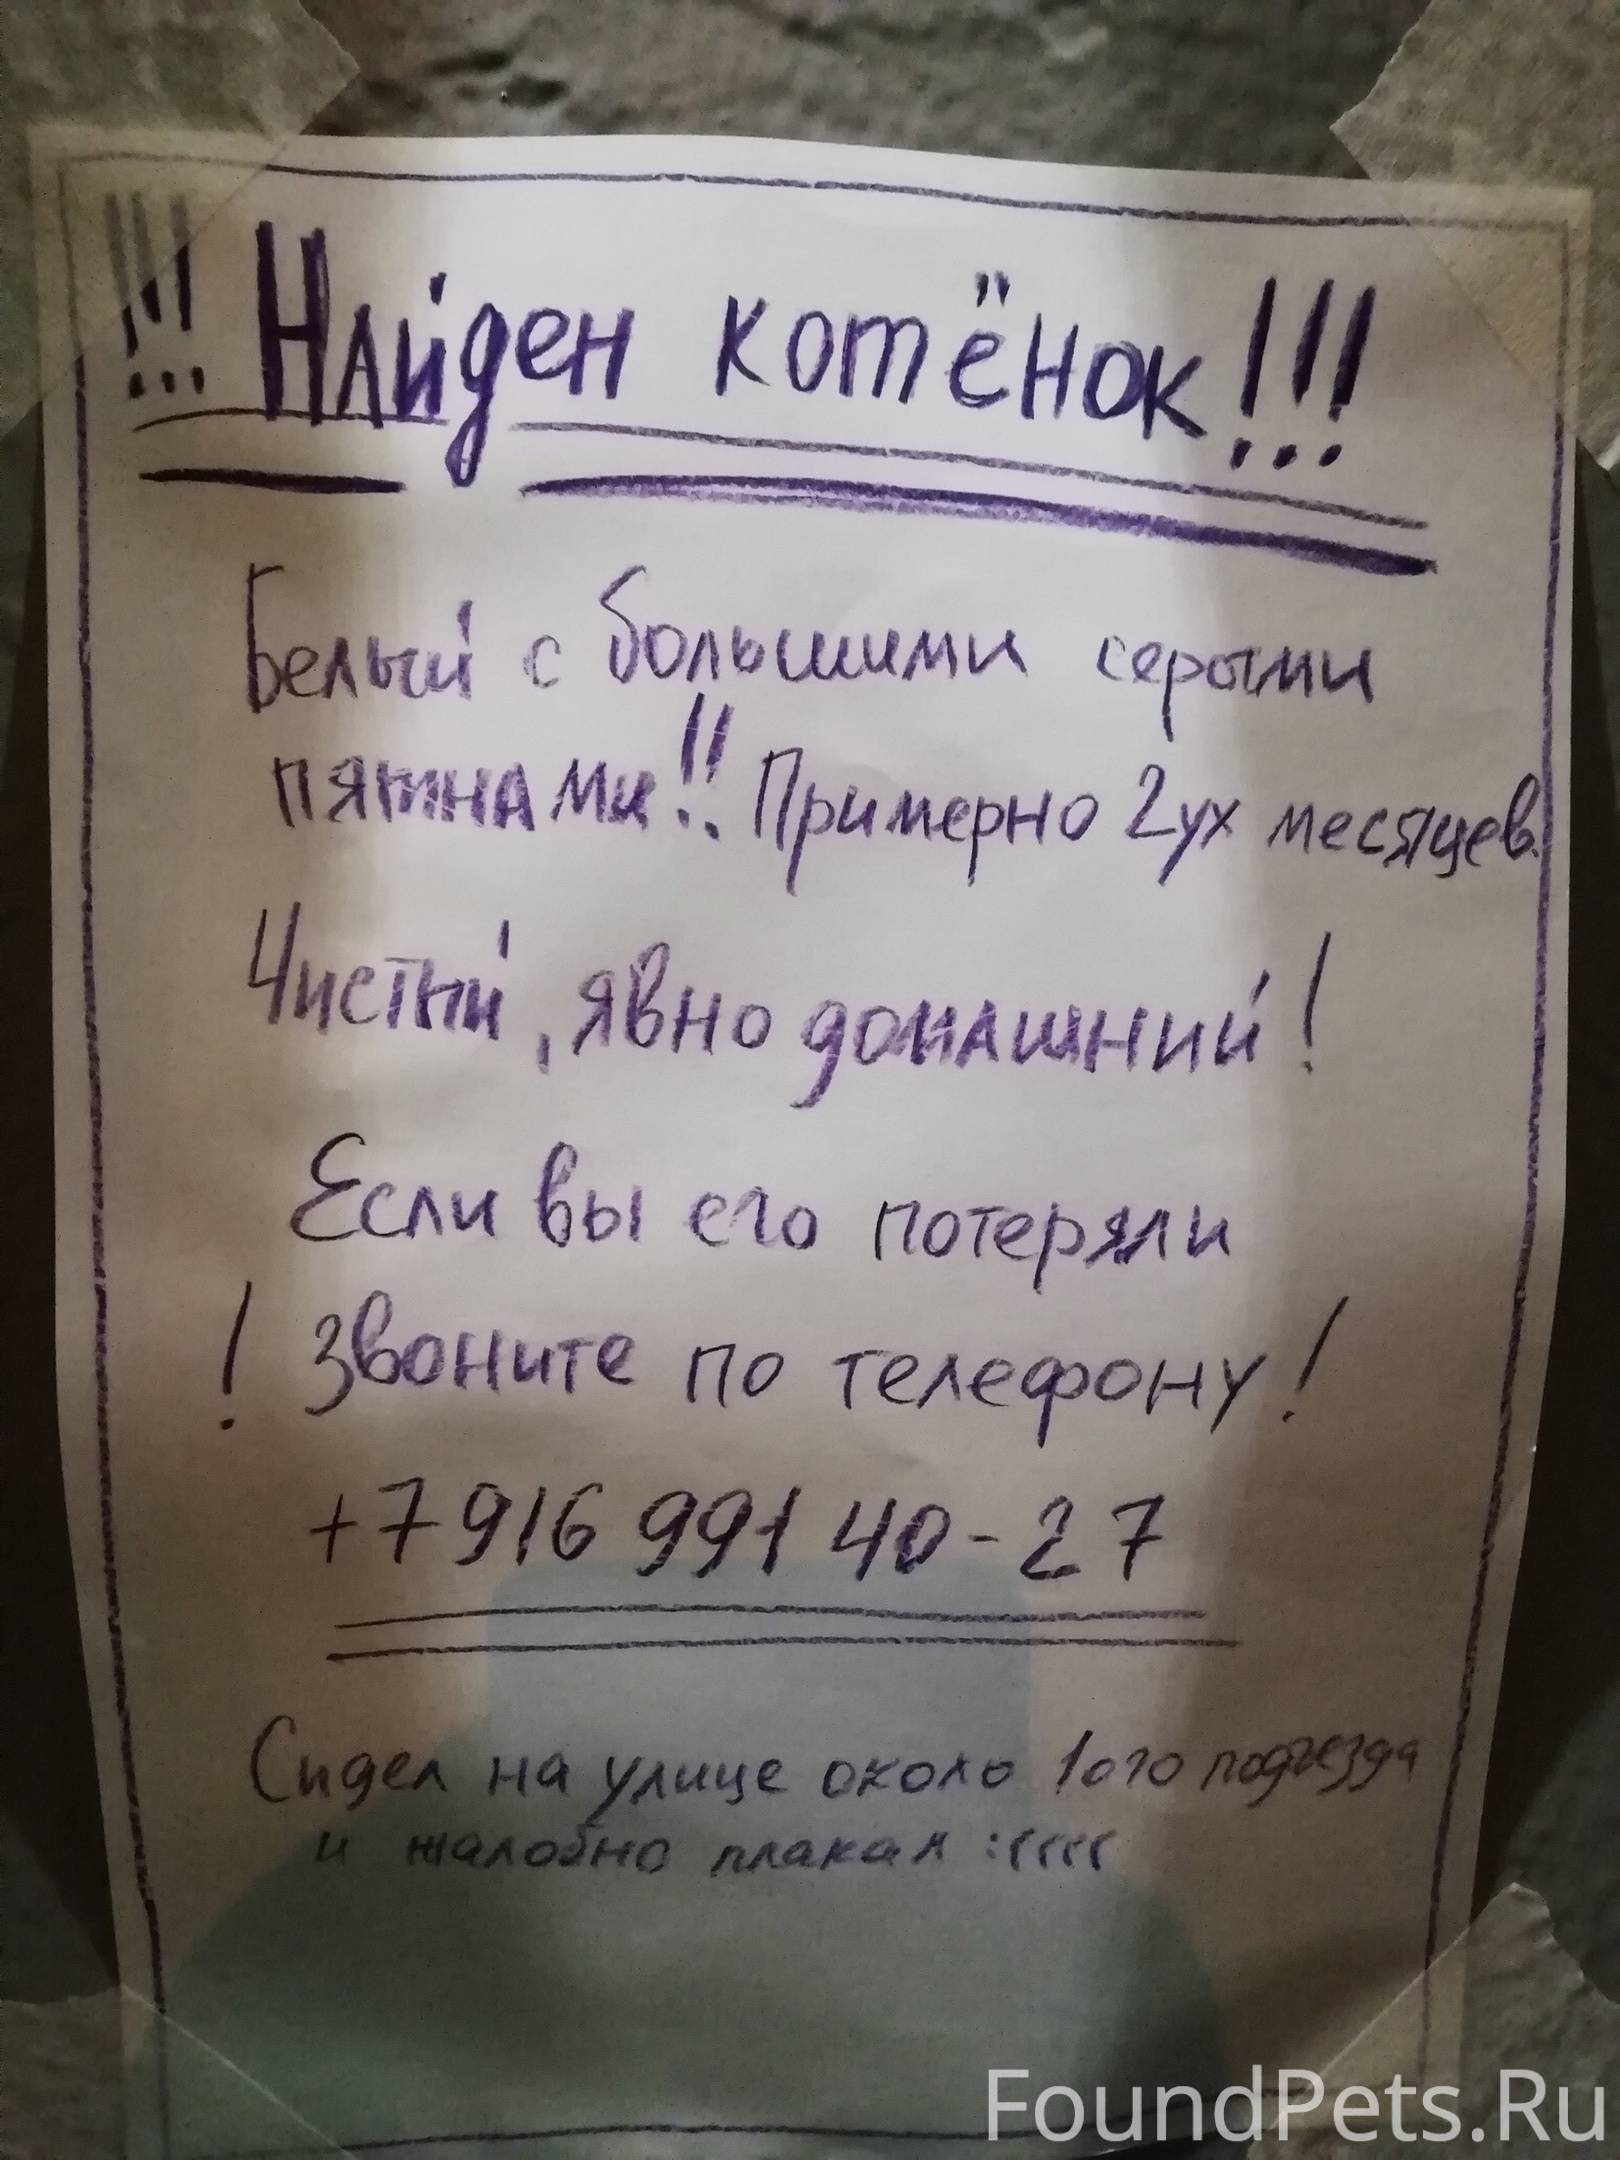 !!! Найден котёнок!!!
Белый с большими серыми
пятнами!! Примерно 2ух месяцев.
Чистый, явно домашний!
Если вы его потеряли
! звоните по телефону!
+7 916 991 40-27
Сидел на улице около 1ого подъезда
и жалобно плакал :((((
FoundPets.Ru